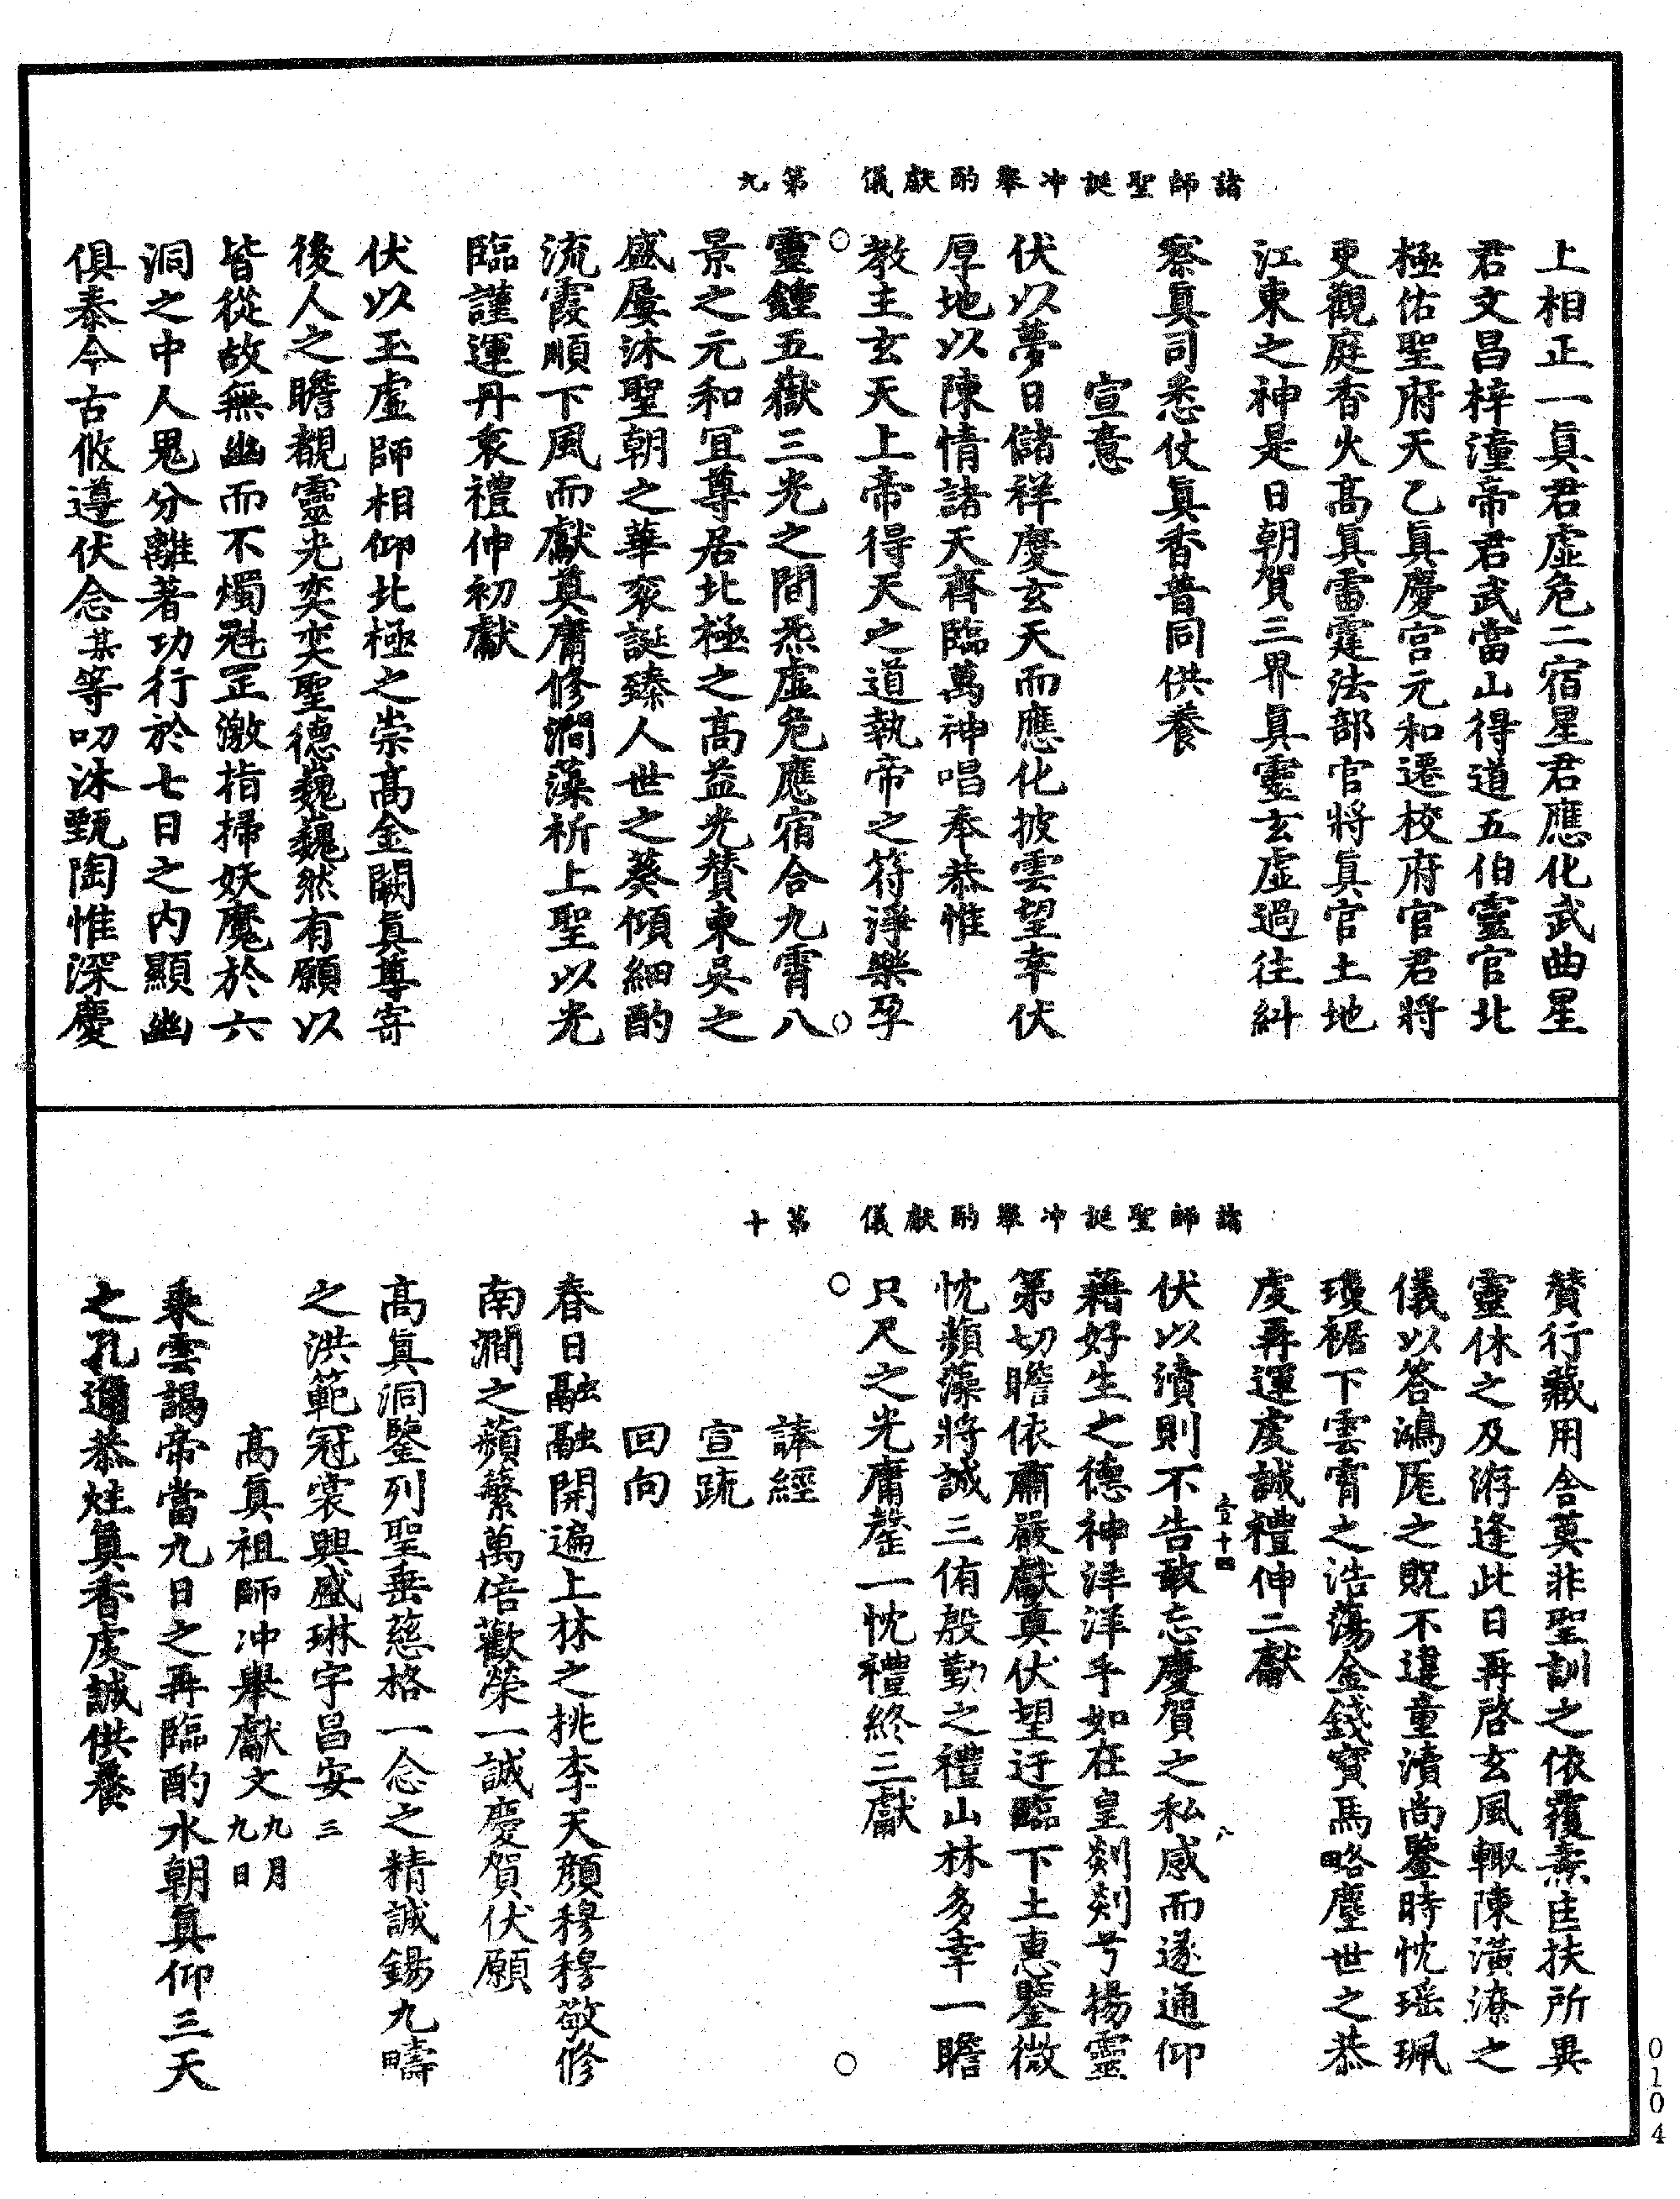 上相正一眞君虛危二宿星君應化武曲星
君文昌梓潼帝君武當山得道五伯靈官北
極佑聖府天乙眞慶宮元和遷校府官君將
吏觀庭香火高眞雷霆法部官將眞官土地
江東之神是日朝賀三界眞靈玄虛過往糾
察眞司悉仗眞香普同供養
宣意
伏以夢日儲祥慶玄天而應化披雲望幸伏
厚地以陳情諸天齊臨萬神唱奉恭惟
教主玄天上帝得天之道執帝之符淨樂孕
諸師聖誕冲舉酌獻儀 第九
靈鍾五嶽三光之間炁虛危應宿合九霄八
景之元和冝尊居北極之高益光贊東吳之
盛屢沐聖朝之華衮誕臻人世之葵傾細酌
流霞順下風而獻奠庸修澗藻祈上聖以光
臨謹運丹衷禮伸初獻
伏以玉虛師相仰北極之崇高金闕眞尊寄
後人之瞻覩靈光奕奕聖德巍巍然有願以
皆從故無幽而不燭魁罡激指掃妖魔於六
洞之中人鬼分離著功行於七日之內顯幽
俱泰今古攸遵伏念某等叨沐甄陶惟深慶
贊行藏用舍莫非聖訓之依覆燾匡扶所異
靈休之及游逢此日再啓玄風輙陳潢潦之
儀以答鴻厖之貺不違童瀆尚鑒時忱瑶珮
瓊裾下雲霄之浩蕩金錢寳馬略塵世之恭
虔再運虔誠禮伸二獻
壹十四
伏以瀆則不告敢忘慶賀之私感而遂通仰
八
藉好生之德神洋洋乎如在皇剡剡兮揚靈
第切瞻依肅嚴獻奠伏望迂臨下土惠鑒微
忱蘋藻將誠三侑殷勤之禮山林多幸一瞻
只尺之光庸罄一忱禮終三獻
諸師聖誕冲舉酌獻儀 第十
諱經
宣䟽
回向
春日融融開遍上林之桃李天顔穆穆敬修
南澗之蘋蘩萬倍歡榮一誠慶賀伏願
高眞洞鑒列聖垂慈格一念之精誠錫九疇
之洪範冠裳興盛琳宇昌安三
高眞祖師冲舉獻文九月九日
乘雲謁帝當九日之再臨酌水朝眞仰三天
之孔邇恭炷眞香虔誠供養
0104